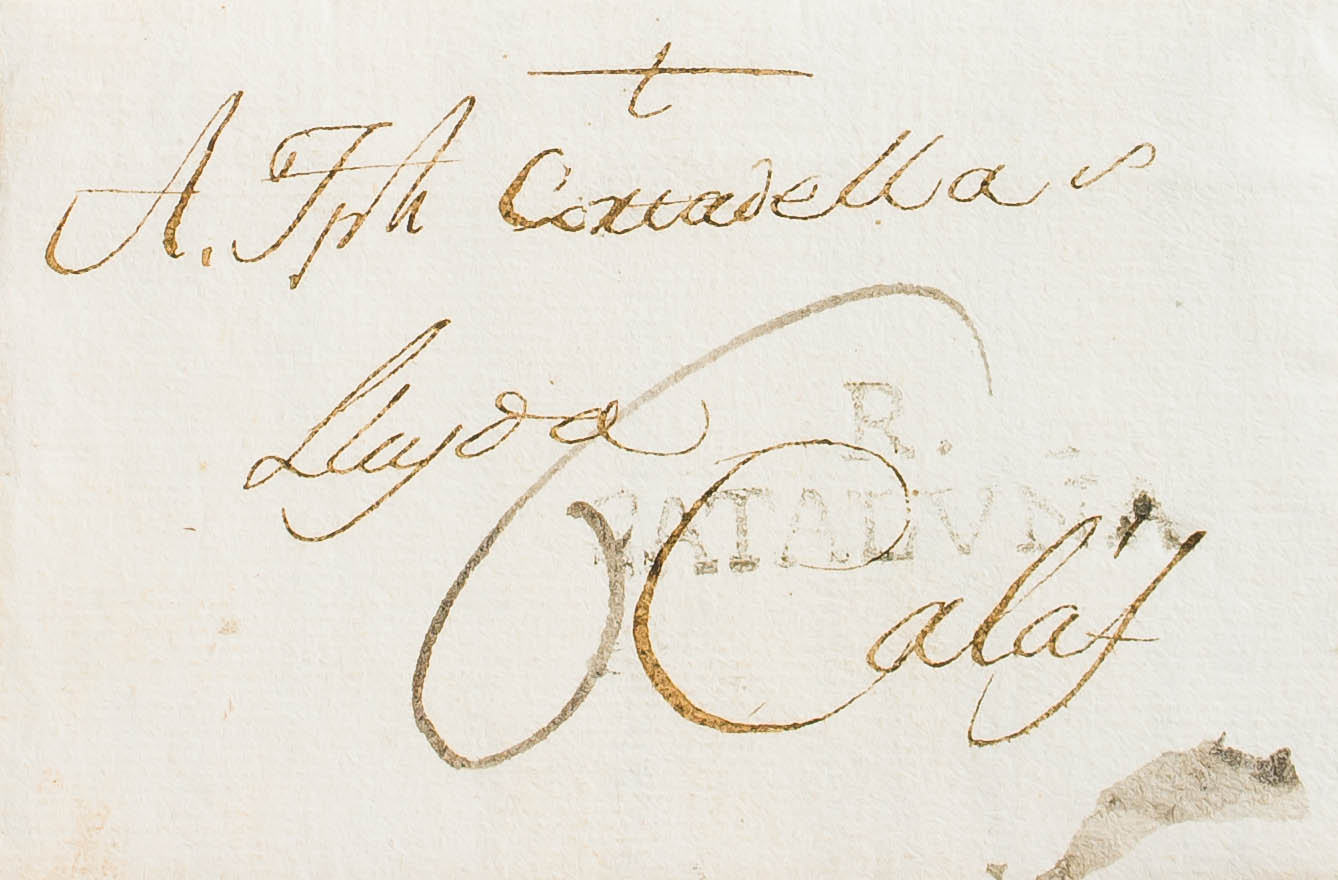 A. Jph Cortadella
Lluyda
R.
CATALVÑA
Calaf